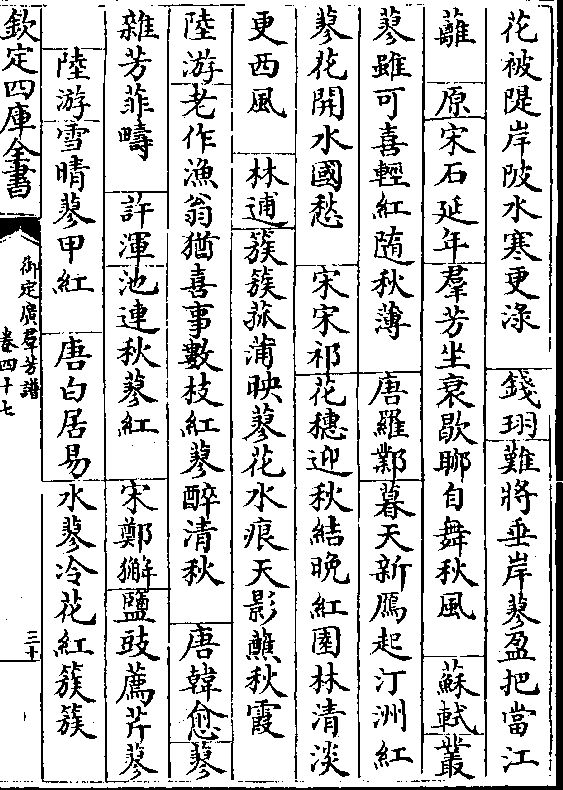 花被隄岸陂水寒更渌 錢珝難將垂岸蓼盈把當江
蘺 原宋石延年羣芳坐衰歇聊自舞秋風 蘇軾叢
蓼雖可喜輕紅隨秋薄 唐羅鄴暮天新鴈起汀洲紅
蓼花開水國愁 宋宋祁花穗迎秋結晚紅園林清淡
更西風 林逋簇簇菰蒲映蓼花水痕天影蘸秋霞
陸游老作漁翁猶喜事數枝紅蓼醉清秋 唐韓愈蓼
雜芳菲疇 許渾池連秋蓼紅 宋鄭獬鹽豉薦芹蓼
陸游雪晴蓼甲紅 唐白居易水蓼冷花紅簇簇
欽定四庫全書
御定廣羣芳譜
卷四十七
三十